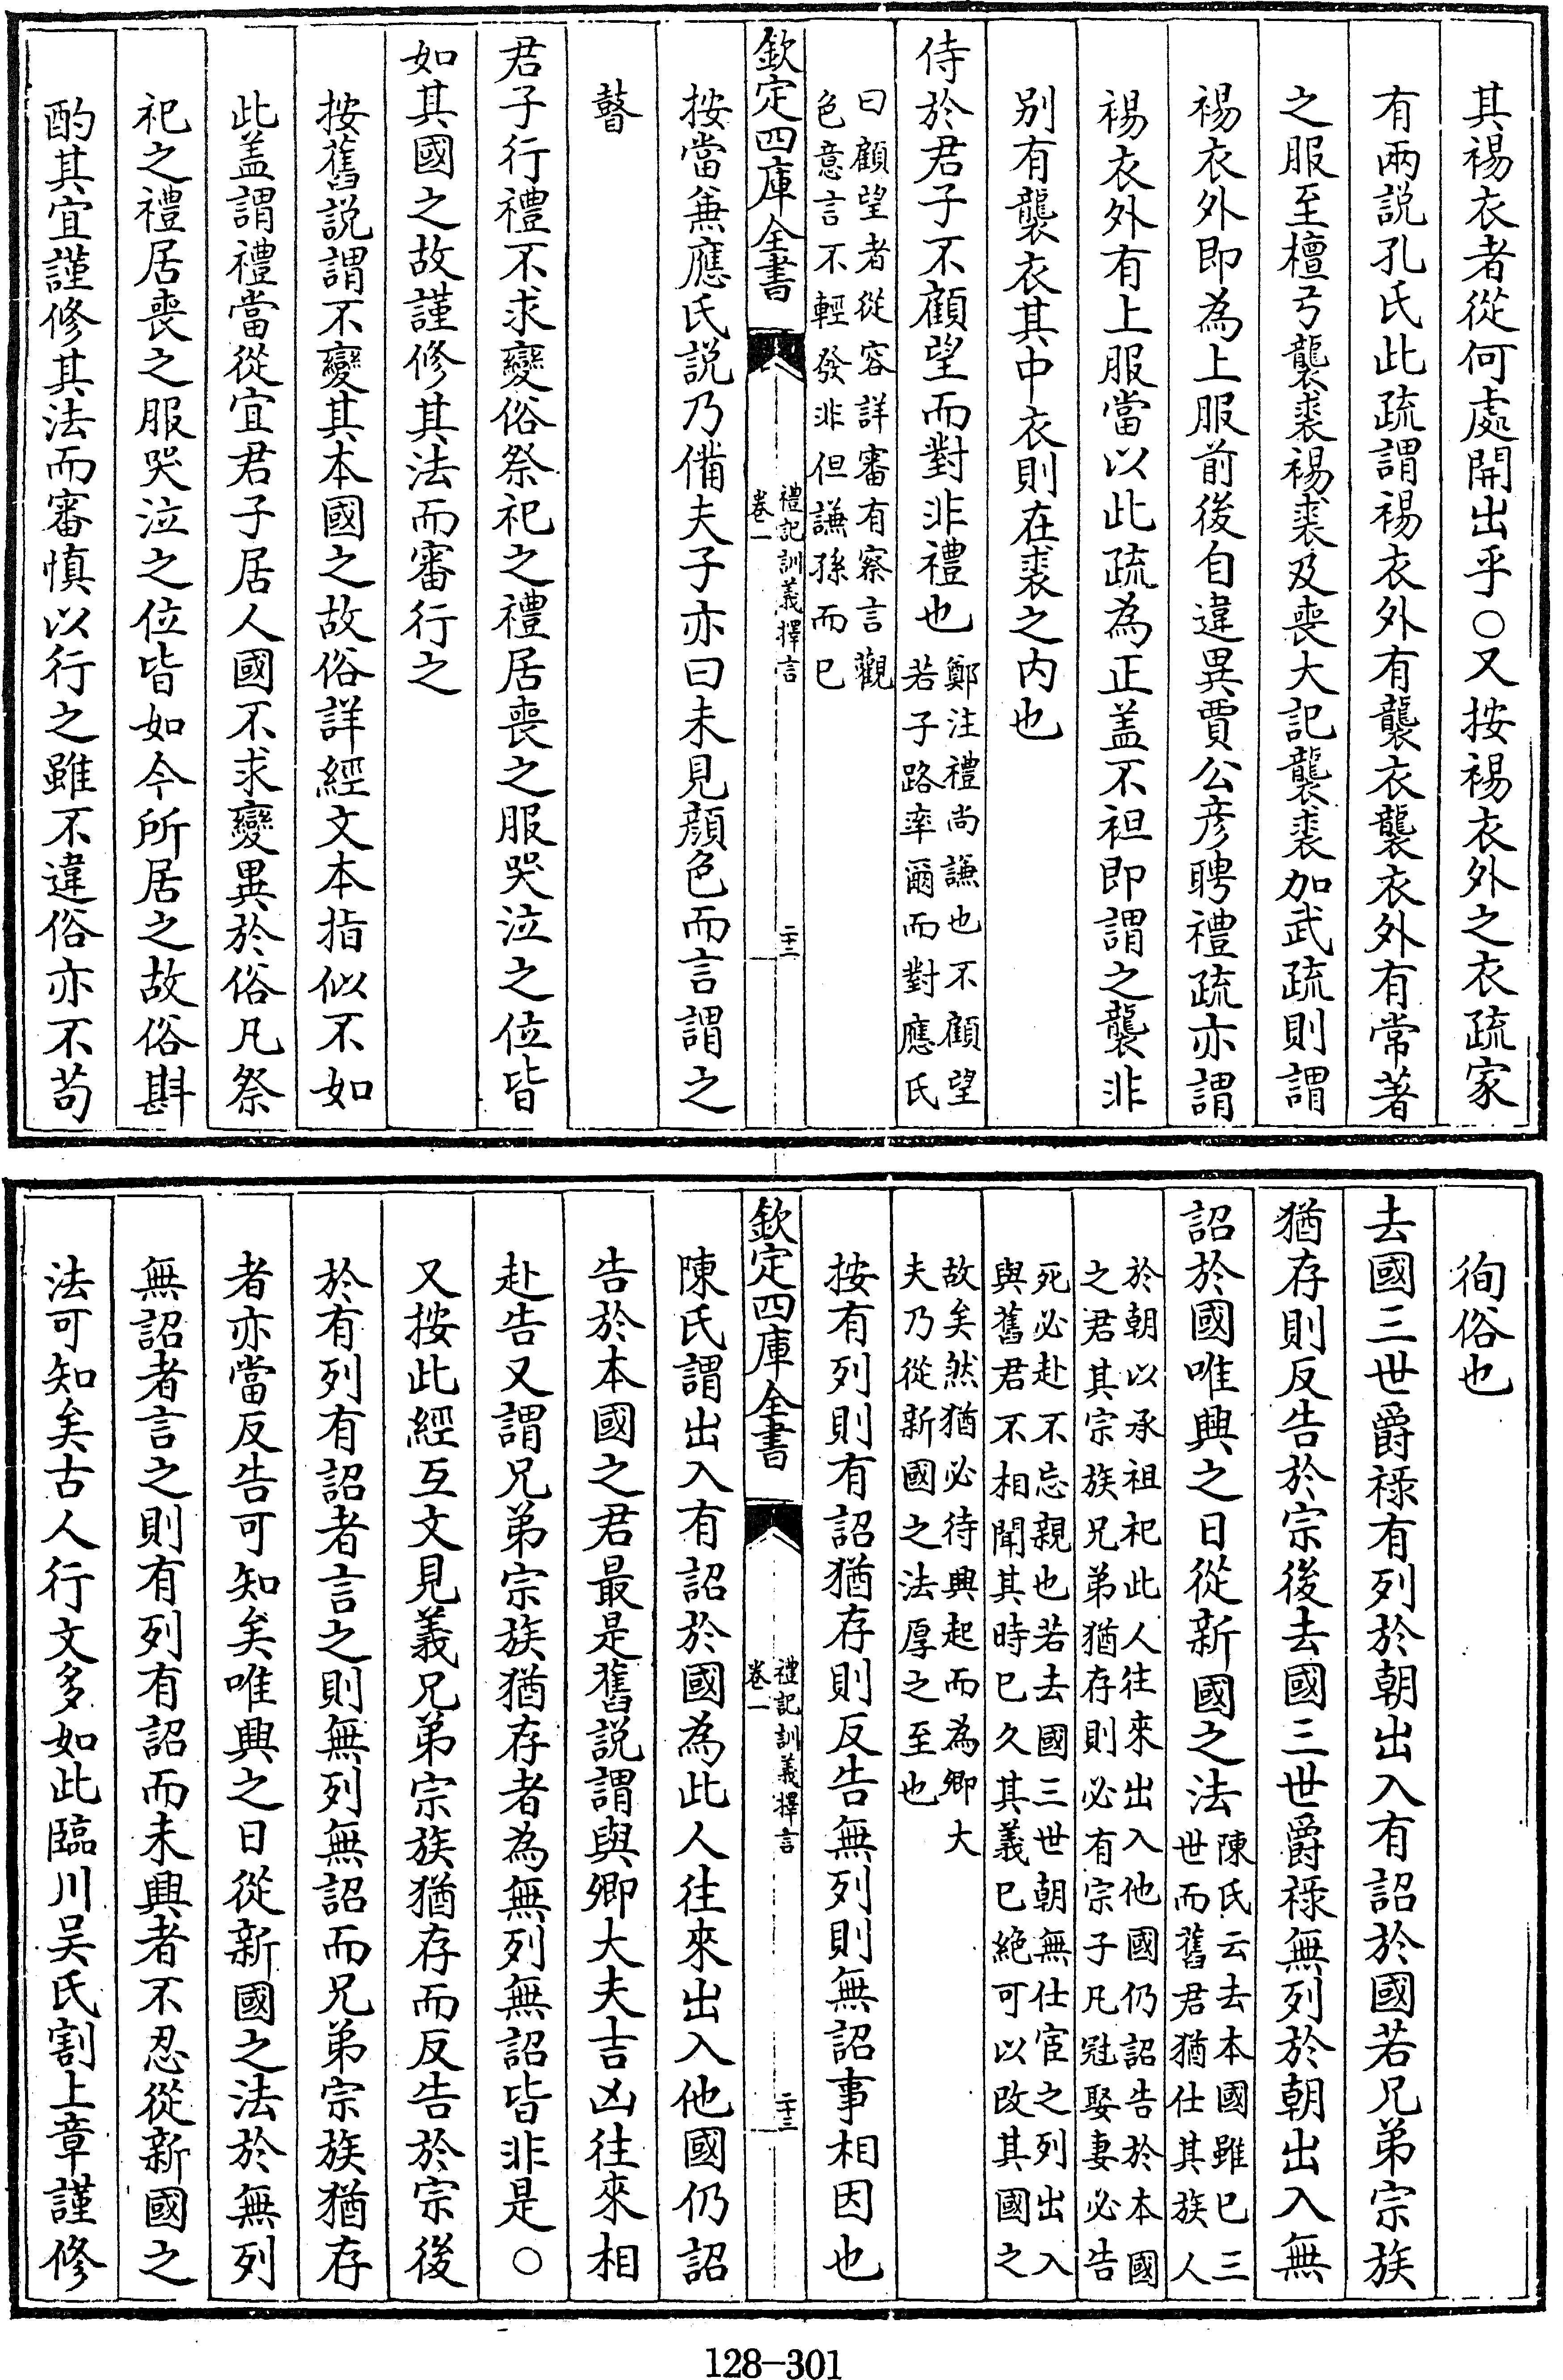 其裼衣者從何處開出乎○又按裼衣外之衣疏家
有兩説孔氏此疏謂裼衣外有襲衣襲衣外有常著
之服至檀弓襲裘裼裘及喪大記襲裘加武疏則謂
裼衣外即為上服前後自違異賈公彦聘禮疏亦謂
裼衣外有上服當以此疏為正盖不袒即謂之襲非
别有襲衣其中衣則在裘之内也
侍於君子不顧望而對非禮也
鄭注禮尚謙也不顧望
若子路率爾而對應氏
曰顧望者從容詳審有察言觀
色意言不輕發非但謙孫而已
欽定四庫全書
禮記訓義擇言
卷一
二十二
按當兼應氏説乃備夫子亦曰未見顔色而言謂之
瞽
君子行禮不求變俗祭祀之禮居喪之服哭泣之位皆
如其國之故謹修其法而審行之
按舊説謂不變其本國之故俗詳經文本指似不如
此盖謂禮當從宜君子居人國不求變異於俗凡祭
祀之禮居喪之服哭泣之位皆如今所居之故俗斟
酌其宜謹修其法而審慎以行之雖不違俗亦不苟
徇俗也
去國三世爵禄有列於朝出入有詔於國若兄弟宗族
猶存則反告於宗後去國三世爵禄無列於朝出入無
詔於國唯興之日從新國之法
陳氏云去本國雖已三
世而舊君猶仕其族人
於朝以承祖祀此人往來出入他國仍詔告於本國
之君其宗族兄弟猶存則必有宗子凡冠娶妻必告
死必赴不忘親也若去國三世朝無仕宦之列出入
與舊君不相聞其時已久其義已絶可以改其國之
故矣然猶必待興起而為卿大
夫乃從新國之法厚之至也
按有列則有詔猶存則反告無列則無詔事相因也
欽定四庫全書
禮記訓義擇言
卷一
二十三
陳氏謂出入有詔於國為此人往來出入他國仍詔
告於本國之君最是舊説謂與卿大夫吉凶往來相
赴告又謂兄弟宗族猶存者為無列無詔皆非是○
又按此經互文見義兄弟宗族猶存而反告於宗後
於有列有詔者言之則無列無詔而兄弟宗族猶存
者亦當反告可知矣唯興之日從新國之法於無列
無詔者言之則有列有詔而未興者不忍從新國之
法可知矣古人行文多如此臨川吴氏割上章謹修
128-301